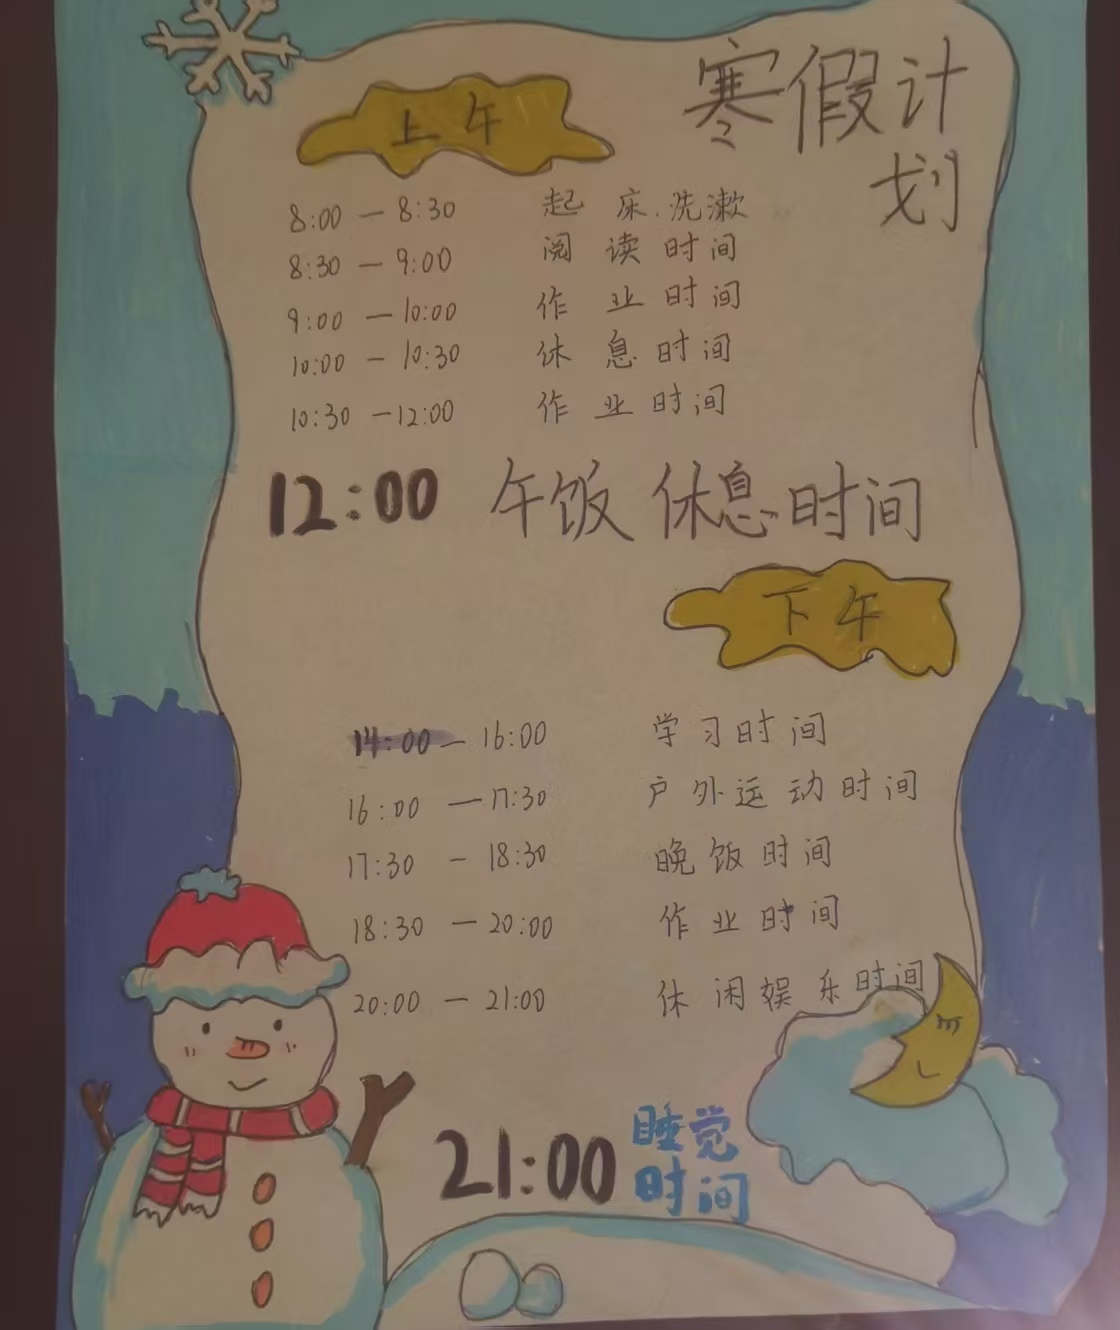 寒假计
划
上午
8:00 — 8:30 起床.洗漱
8:30 — 9:00 阅读时间
9:00 — 10:00 作业时间
10:00 — 10:30 休息时间
10:30 — 12:00 作业时间
12:00 午饭 休息时间
下午
14:00 — 16:00 学习时间
16:00 — 17:30 户外运动时间
17:30 — 18:30 晚饭时间
18:30 — 20:00 作业时间
20:00 — 21:00 休闲娱乐时间
21:00 睡觉
时间